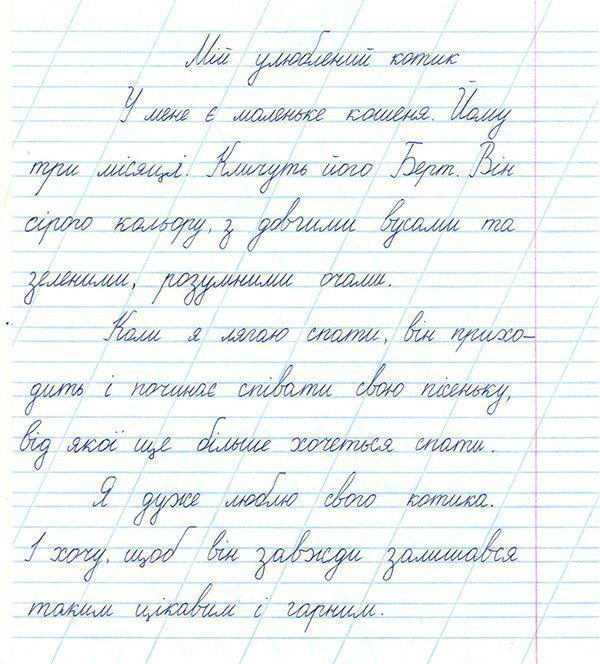 Мій улюблений котик
У мене є маленьке кошеня. Йому
три місяці. Кличуть його Берт. Він
сірого кольору, з довгими вусами та
зеленими, розумними очами.
Коли я лягаю спати, він прихо-
дить і починає співати свою пісеньку,
від якої ще більше хочеться спати.
Я дуже люблю свого котика.
І хочу, щоб він завжди залишався
таким цікавим і гарним.